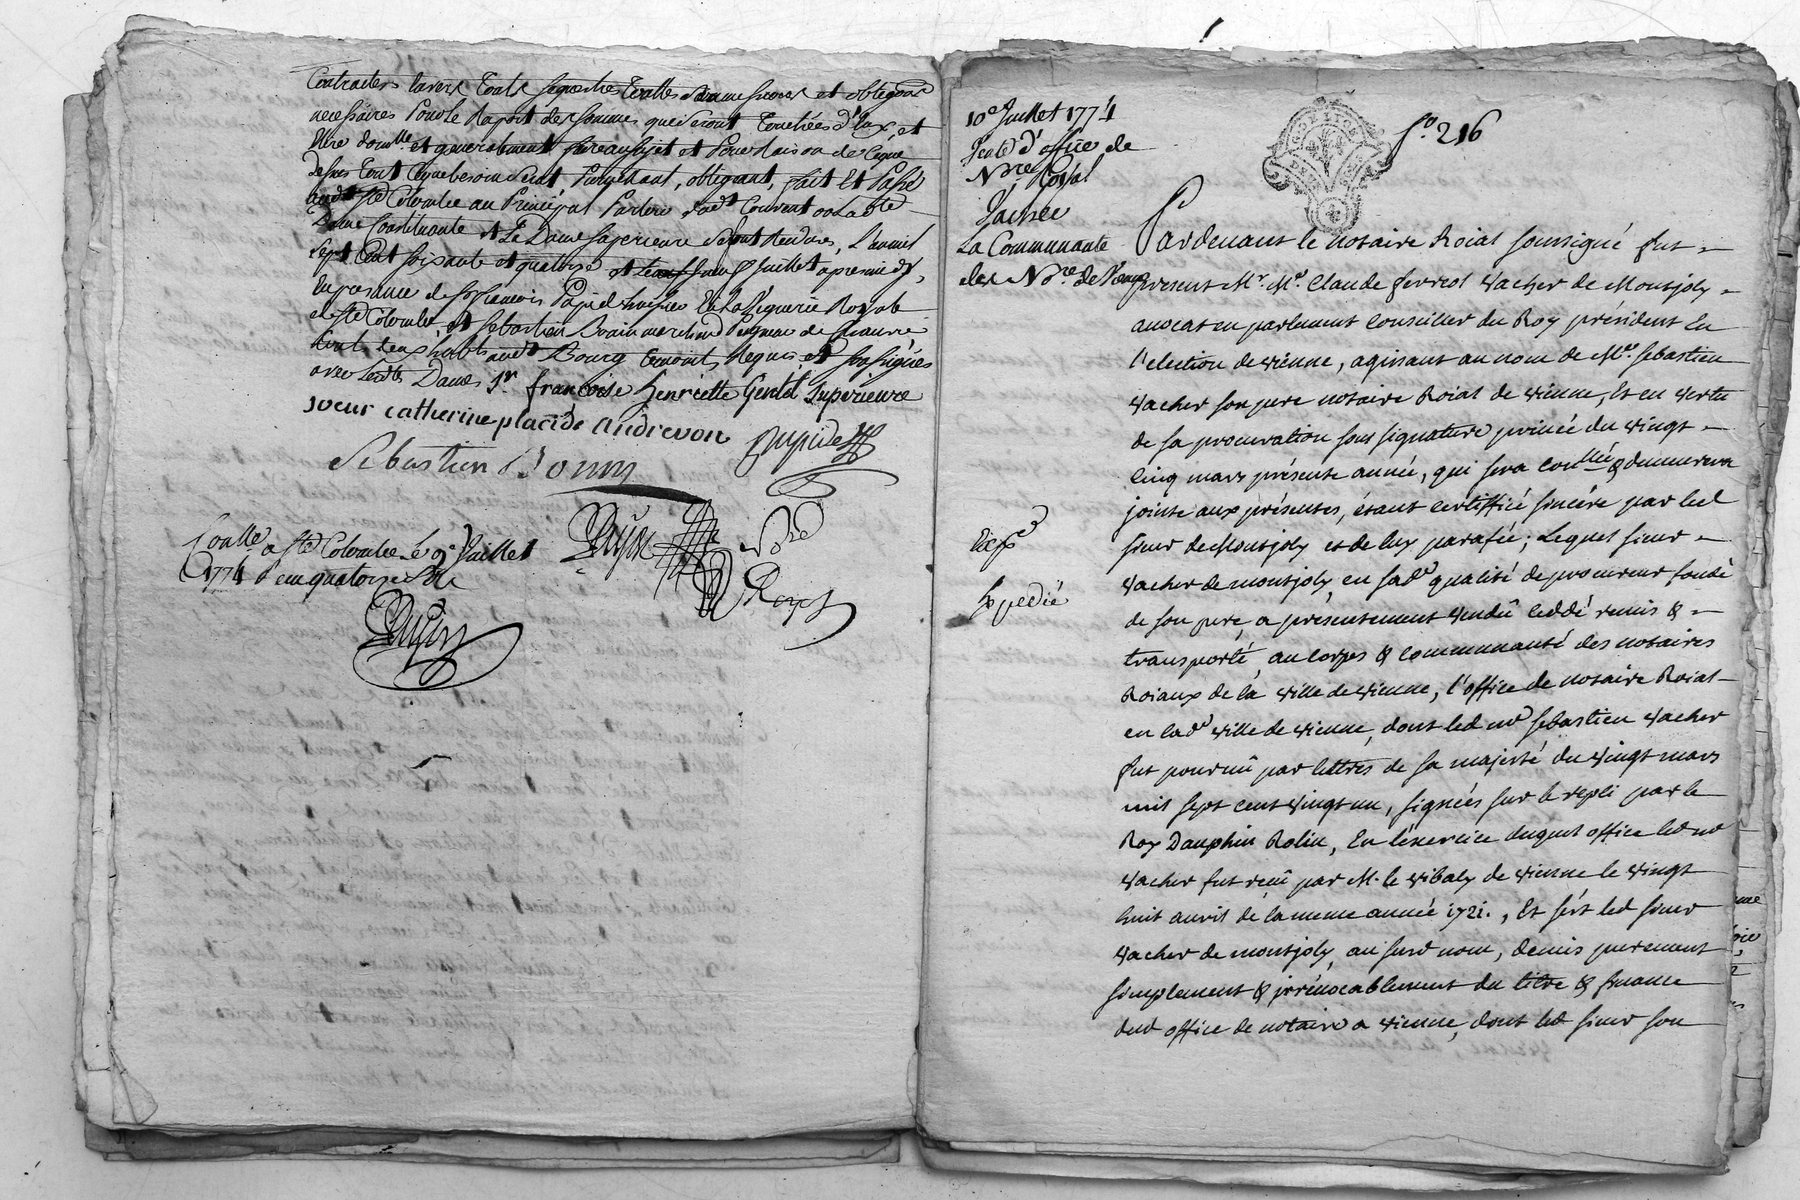 Contracter envers touts sequestres toutes soumissions et obligaõns
necessaires pour le raport des sommes qui seront touchées d'eux et
et generalement faire au sujet et pour raison de ce que
dessus tout ce que besoin sera promettant, obligeant, fait et passé
aud.t S.te Colombe au principal parloir dud.t Couvent ou lad.te
Dame constituante et la Dame superieure se sont rendues, l'an mil
sept cent soixante et quatorze et le neuf juillet apres midy,
en presence de s.r francois
de S.te Colombe, et Sebastien Bonin marchand
touts deux habts aud.t Bourg temoins requis et soussignés
avec lesd.tes Dames s.r francoise henriette Gentil superieure
soeur catherine placide andrevon
Sebastien Bonin
Not.re
Royal
Con.lle a S.te Colombe le 9.e Juillet
1774 R. cinquatorze sols
10.e Juillet 1774
Vente d'office de
N.re Royal
Vacher
La Communauté
des N.res de Vienne
Exp.é
Expedié
f.o 216
Pardevant le notaire Roial soussigné fut
present M.r M.e Claude ferreol Vacher de Montjoly
avocat en parlement conseiller du Roy président en
l'election de vienne, agissant au nom de M.e Sebastien
Vacher son pere notaire Roial de vienne, et en vertu
de sa procuration sous signature privée du vingt
cinq mars présente année, qui sera con.llée & demeurera
jointe aux présentes, étant certiffiée sincère par led
sieur de Montjoly et de luy parafée; Lequel sieur
Vacher de montjoly, en sad.e qualité de procureur fondé
de son pere, a présentement vendû cédé remis &
transporté, au corps & communauté des notaires
Roiaux de la ville de vienne, l'office de notaire Roial
en lad.e ville de vienne, dont led me Sebastien Vacher
fut pourvû par lettres de sa majesté du vingt mars
mil sept cent vingt un, signées sur le repli par le
Roy Dauphin Rolin, En l'exercice duquel office led me
Vacher fut reçû par M. le vibaly de vienne le vingt
huit avril de la meme année 1721., Et s'est led sieur
Vacher de montjoly, au susd nom, demis purement
simplement & irrévocablement du titre & finance
dud office de notaire a vienne, dont led sieur son